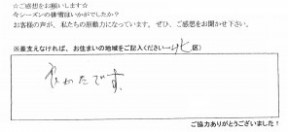 ☆ご感想をお願いします☆
今シーズンの修習はいかがでしたか？
お客様の声が、私たちの原動力になっています。ぜひ、ご感想をお聞かせ下さい。
※差支えなければ、お住まいの地域をご記入ください→（北 区）
良かったです。
ご協力ありがとうございました！